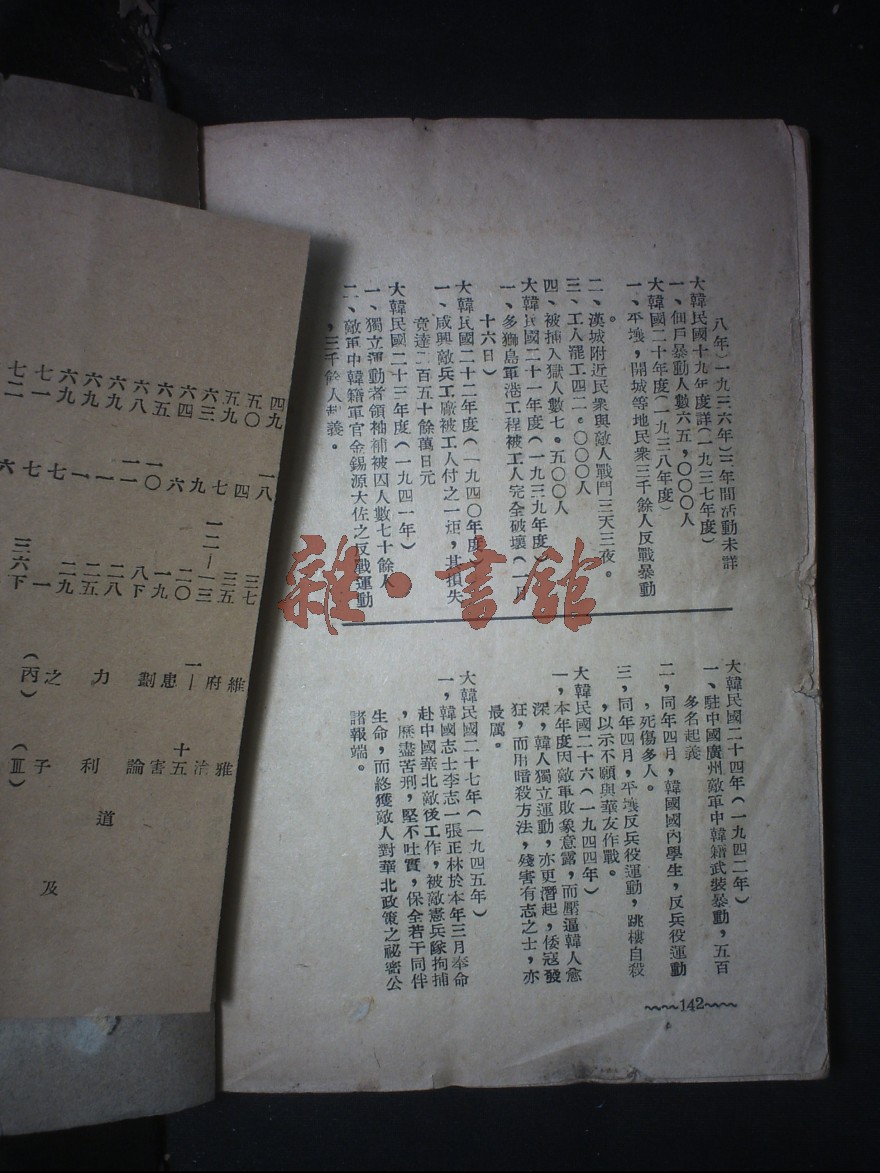 八年)一九三六年)三年間活動未詳
大韓民國十九年度詳(一九三七年度)
一、佃戶暴動人數六五,〇〇〇人
大韓民國二十年度(一九三八年度)
一、平壤,開城等地民衆三千餘人反戰暴動
。
二、漢城附近民衆與敵人戰鬥三天三夜。
三、工人罷工四二.〇〇〇人
四、被捕入獄人數七.五〇〇人
大韓民國二十一年度(一九三九年度)
一、多獅島軍港工程被工人完全破壞(一月
十六日)
大韓民國二十二年度(一九四〇年度)
一、咸興敵兵工廠被工人付之一炬,其損失
竟達二百五十餘萬日元
大韓民國二十三年度(一九四一年)
一、獨立運動者領袖補被囚人數七十餘人
二、敵軍中韓籍軍官金錫源大佐之反戰運動
,三千餘人起義。
大韓民國二十四年(一九四二年)
一、駐中國廣州敵軍中韓籍武裝暴動,五百
多名起義
二,同年四月,韓國國內學生,反兵役運動
,死傷多人。
三,同年四月,平壤反兵役運動,跳樓自殺
,以示不願與華友作戰。
大韓民國二十六(一九四四年)
一,本年度因敵軍敗象意露,而壓逼韓人愈
深,韓人獨立運動,亦更潛起,倭寇發
狂,而用暗殺方法,殘害有志之士,亦
最厲。
大韓民國二十七年(一九四五年)
一,韓國志士李志一張正林於本年三月奉命
赴中國華北敵後工作,被敵憲兵隊拘捕
,歷盡苦刑,堅不吐實,保全若干同伴
生命,而終獲敵人對華北政策之祕密公
諸報端。
142
四九 一八 三七 維 雅
五〇 四 三五 府 法
五九 七 一二—一三 一— 十五
六三 九 二〇 患 害
六四 七 一九 劃 論
六五 六 八下
六八 一〇 二八 力 利
六九 一一 二五
六九 一 二九 之 子
七一 七 一 (丙) (Ⅲ)
七二 六 三六下
道
及
雜·書館